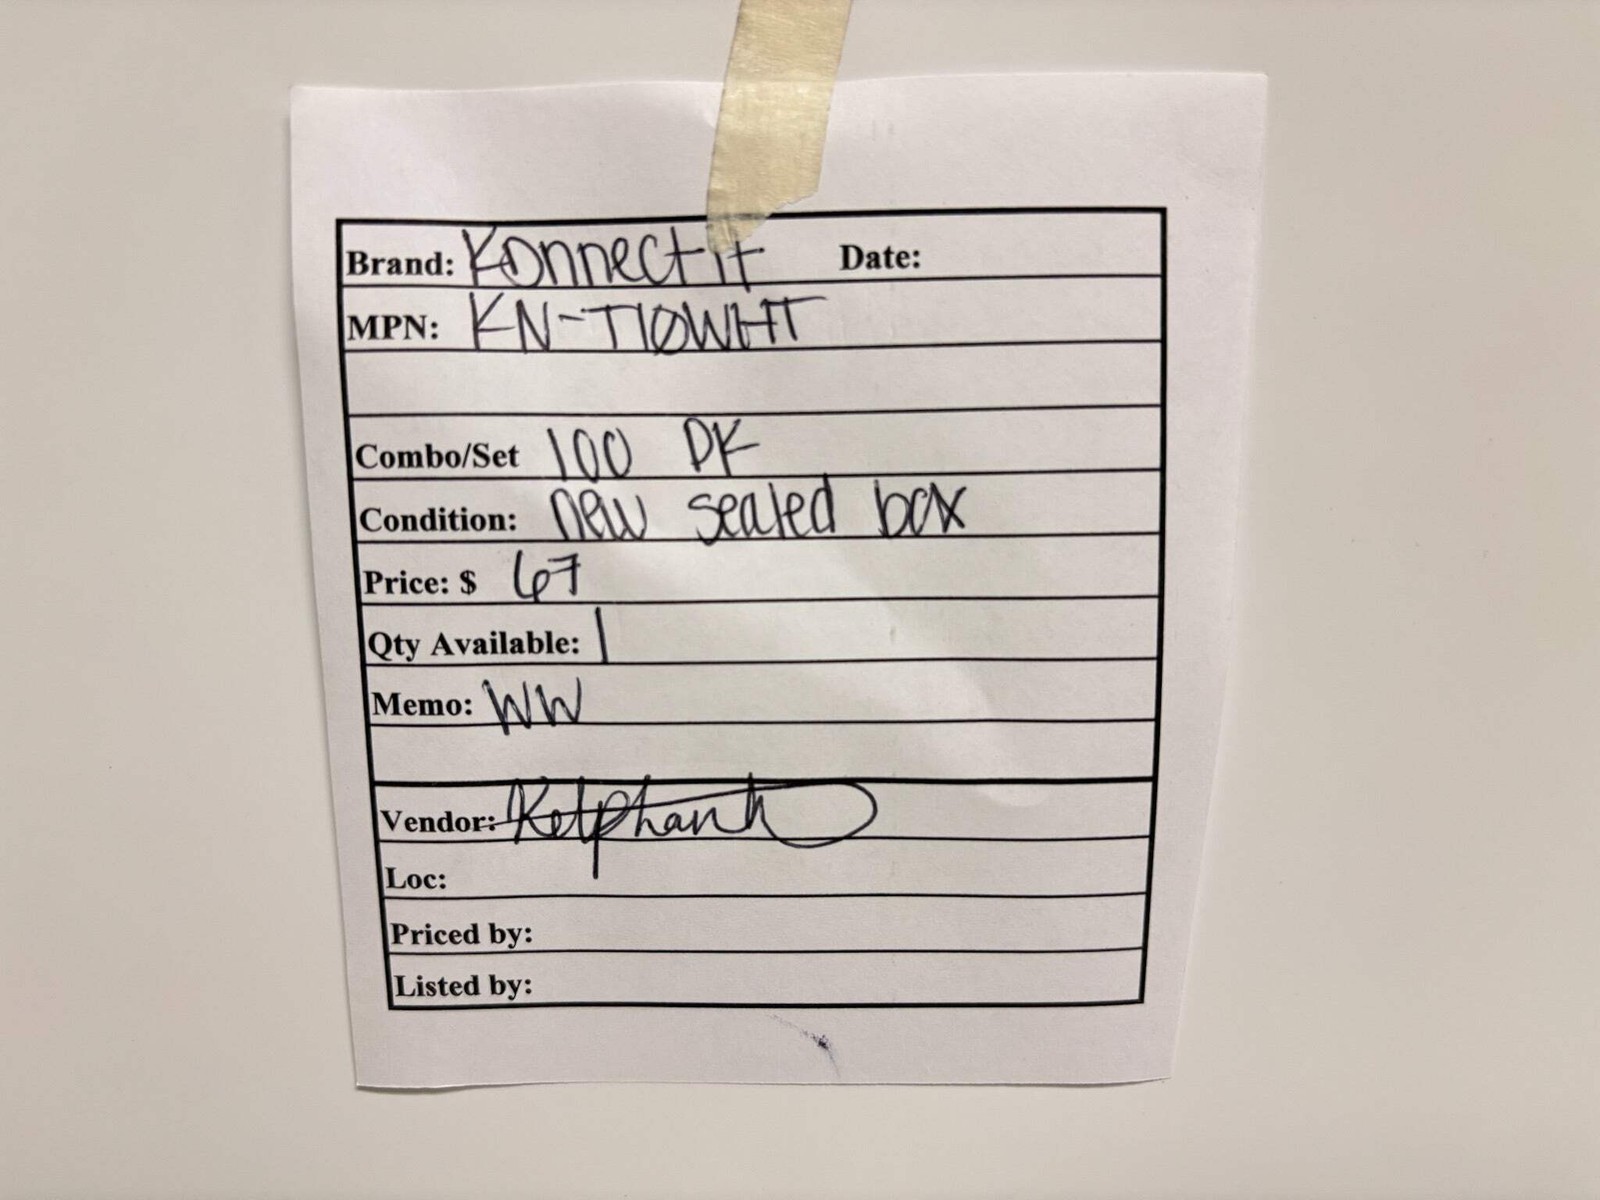 Brand: Konnect it Date:
MPN: KN-T10WHT
Combo/Set 100 PK
Condition: new sealed box
Price: $ 67
Qty Available: 1
Memo: WW
Vendor:
Loc:
Priced by:
Listed by: